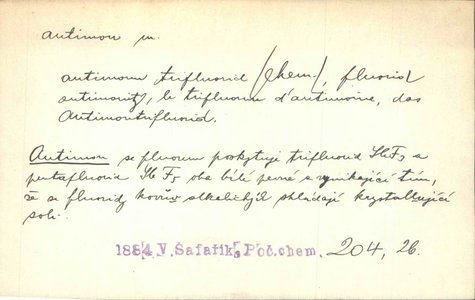 antimon m.
antimonu trifluorid (chem), fluorid
antimonitý, le trifluorure d'antimoine, das
Antimontrifluorid.
Antimon se fluorem poskytuje trifluorid SbF3 a
pentafluorid SbF5 oba bílé pevné a vynikající tím,
že se fluoridy kovův alkalických skládají krystalující
soli.
1884 V. Šafařík, Poč.chem. 204, 26.